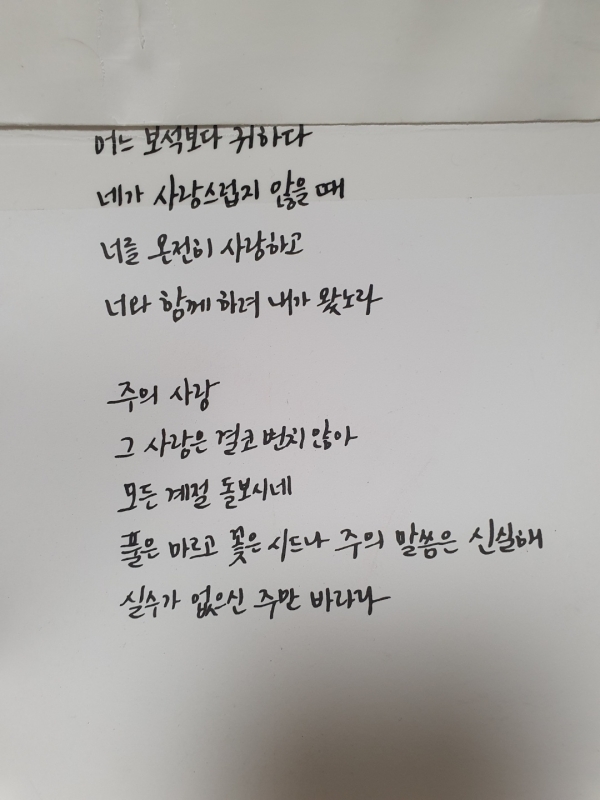 어느 보석보다 귀하다
네가 사랑스럽지 않을 때
너를 온전히 사랑하고
너와 함께 하려 내가 왔노라
주의 사랑
그 사랑은 결코 변치 않아
모든 계절 돌보시네
풀은 마르고 꽃은 시드나 주의 말씀은 신실해
실수가 없으신 주만 바라라